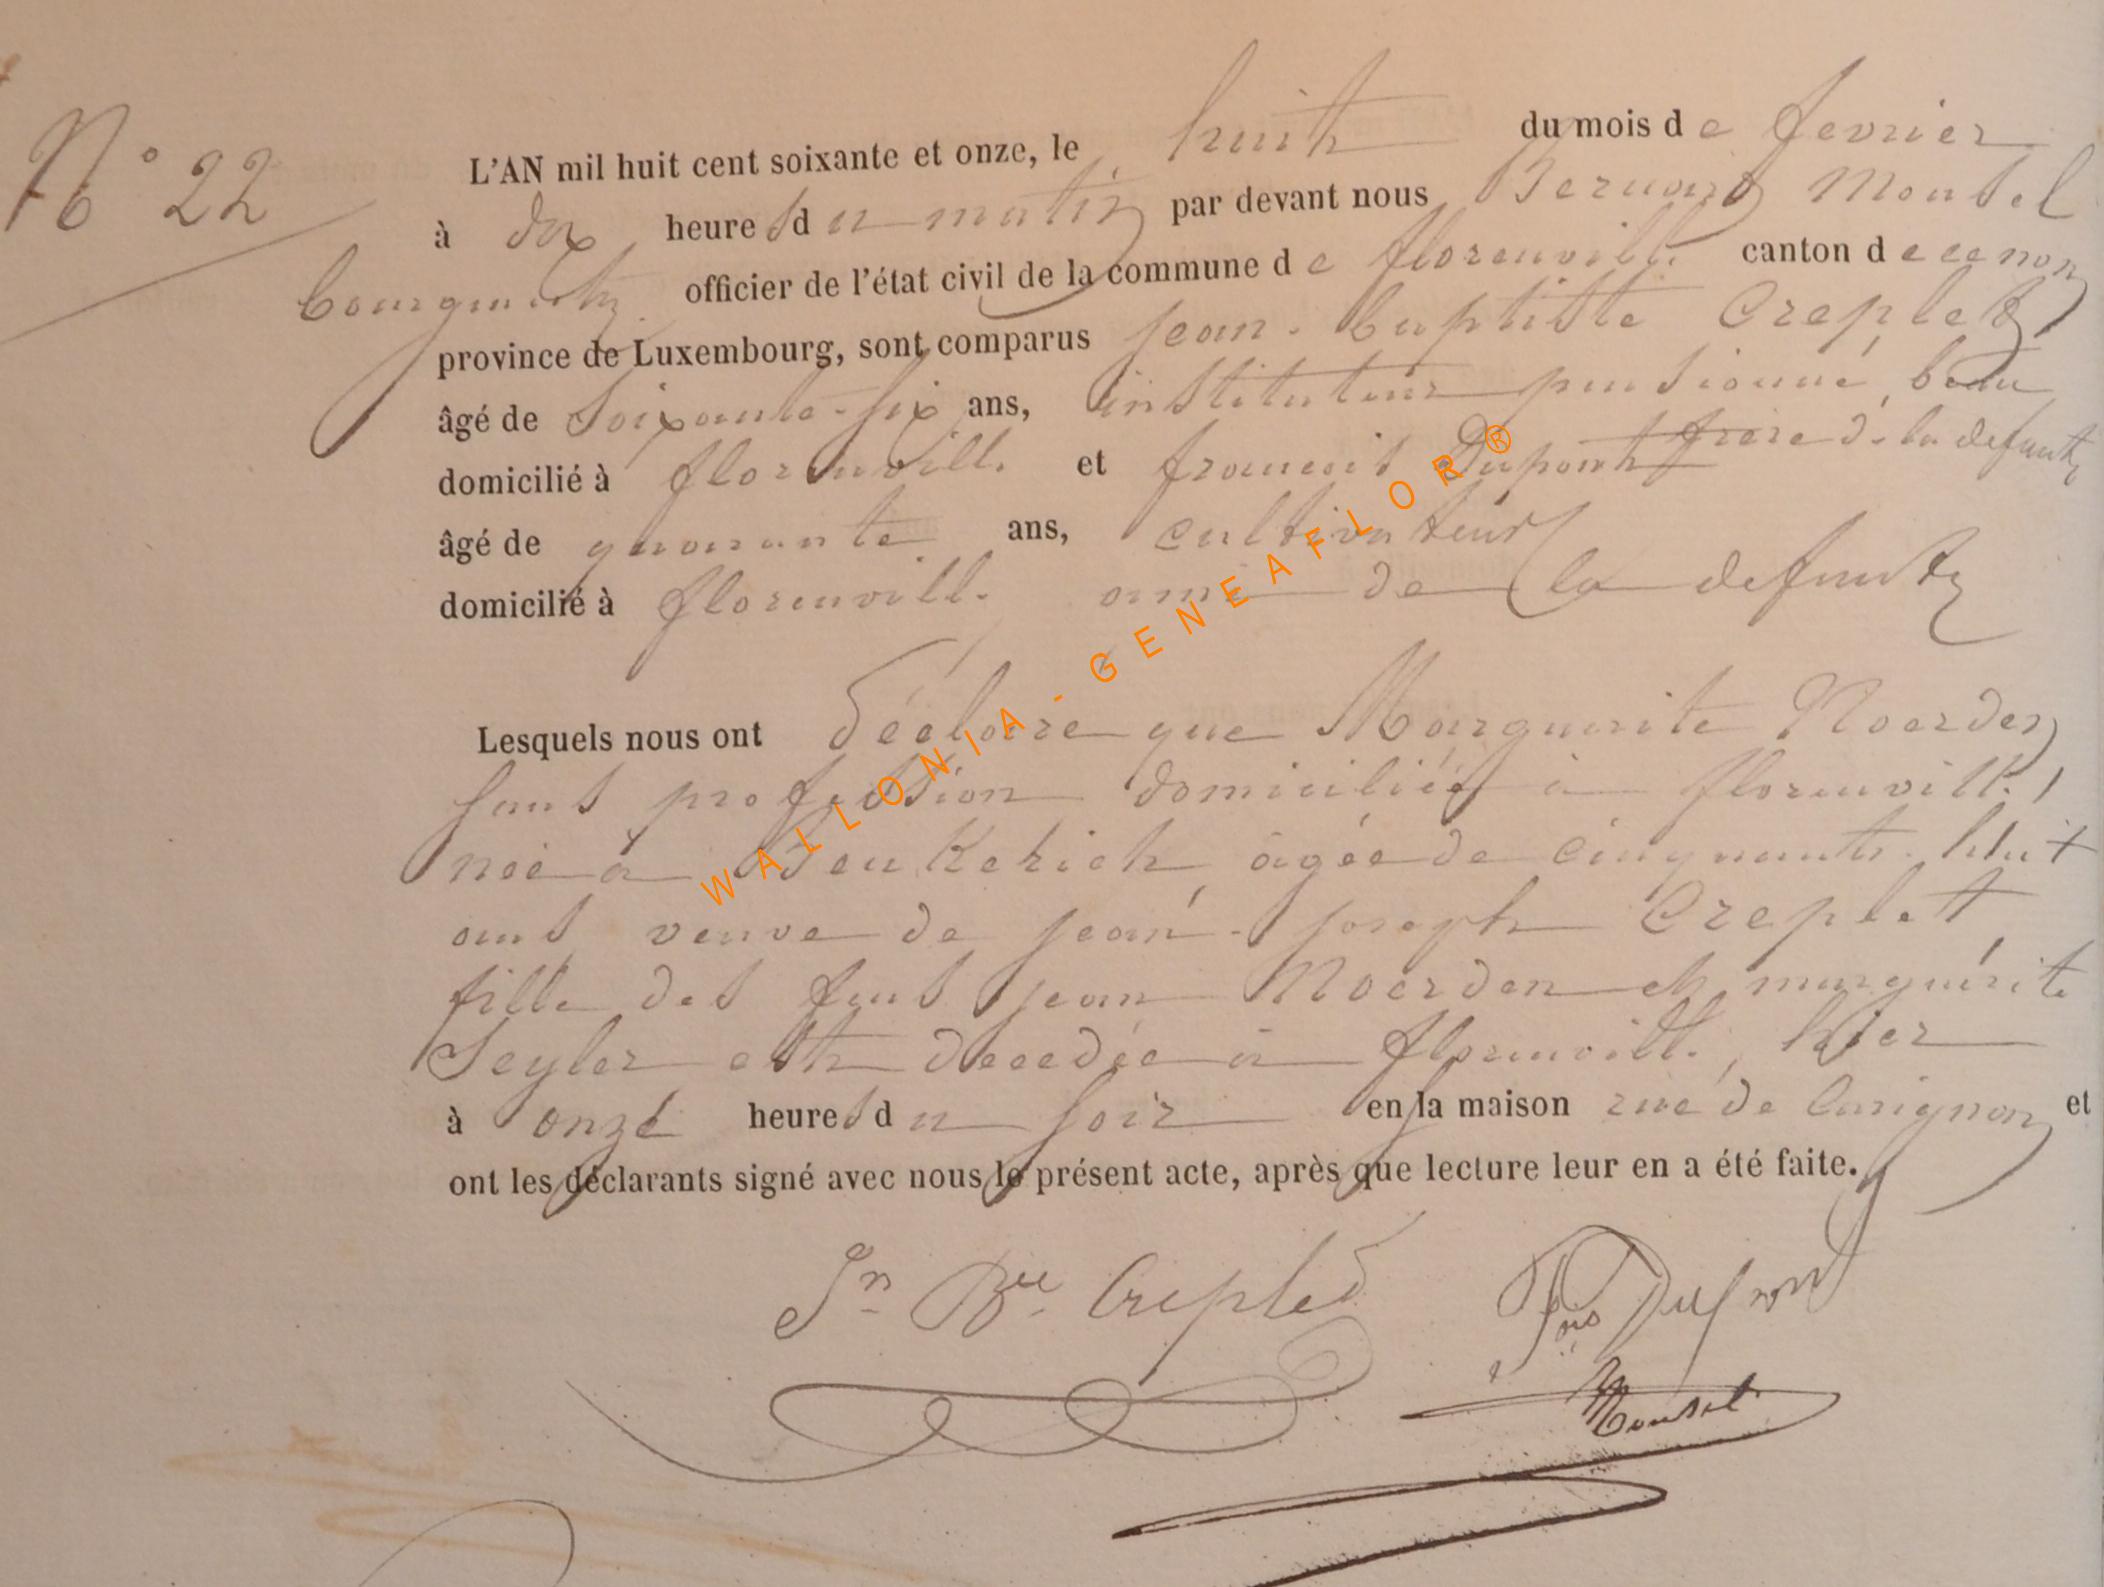 N° 22
L'AN mil huit cent soixante et onze, le huit du mois de fevrier
à dix heures du matin par devant nous Bernard Mousel
bourgmestre officier de l'état civil de la commune de florenville canton de ce nom
province de Luxembourg, sont comparus jean-baptiste Creplet
âgé de soixante-six ans, instituteur pensionné, beau
frere de la defunte
domicilié à florenville et francois Dupont
âgé de quarante ans, cultivateur
domicilié à florenville ami de la defunte
Lesquels nous ont déclare que Marguerite Noerden
sans profession domiciliée à florenville,
née à Beukerich, agée de cinquante-huit
ans veuve de jean-joseph Creplet
fille des feus jean Noerden et marguerite
Seyler est decedée à florenville, hier
à onze heures du soir en la maison rue de Carignan et
ont les déclarants signé avec nous le présent acte, après que lecture leur en a été faite.
Jn Bte Creplet
Fois Dupont
Mousel
WALLONIA-GENEAFLOR®